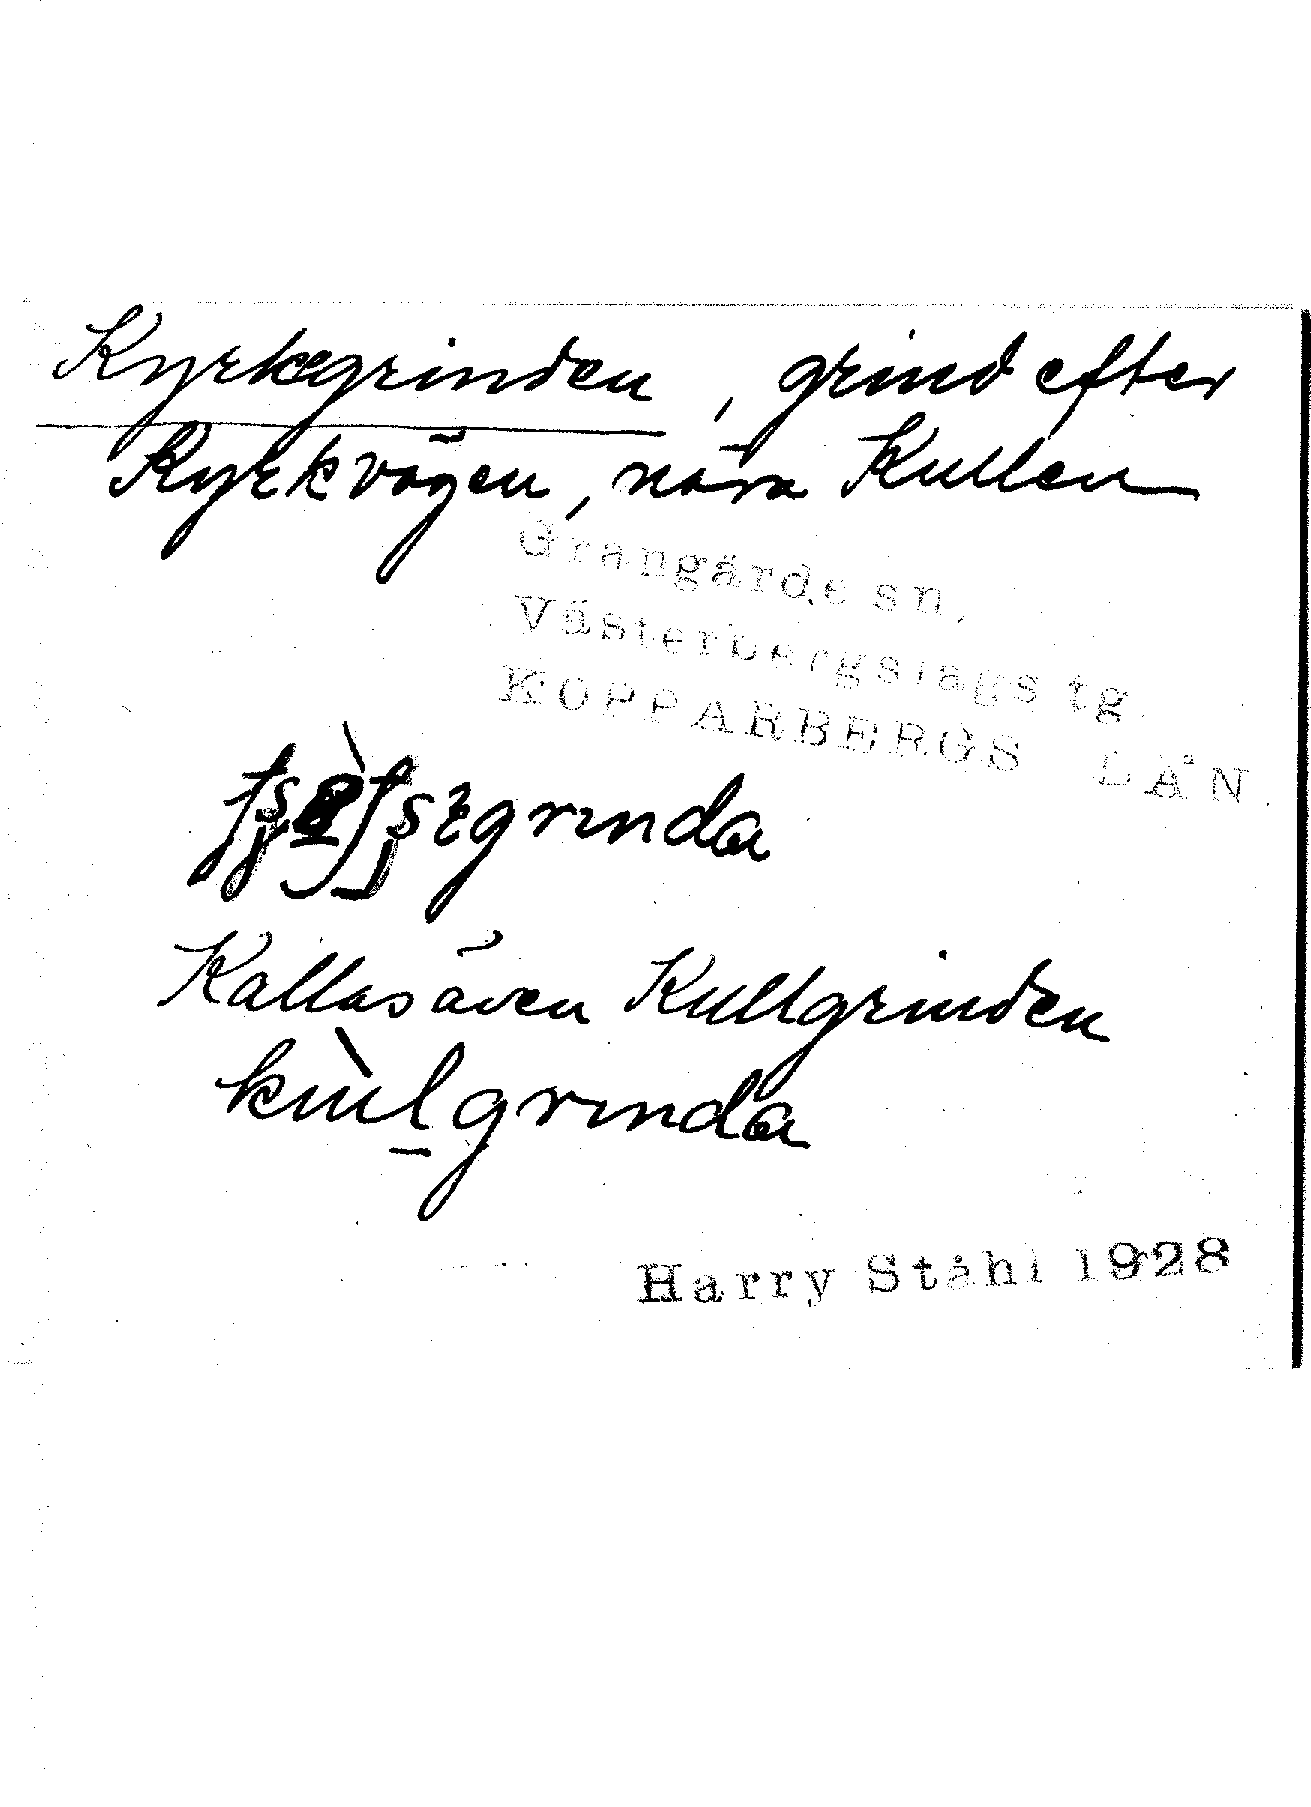 Kyrkegrinden, grind efter
Kyrkvägen, nära Kullen
Grangärde sn,
Västerbergslags tg.
KOPPARBERGS LÄN
Kallas även Kullgrinden
kùlgrinda
Harry Ståhl 1928